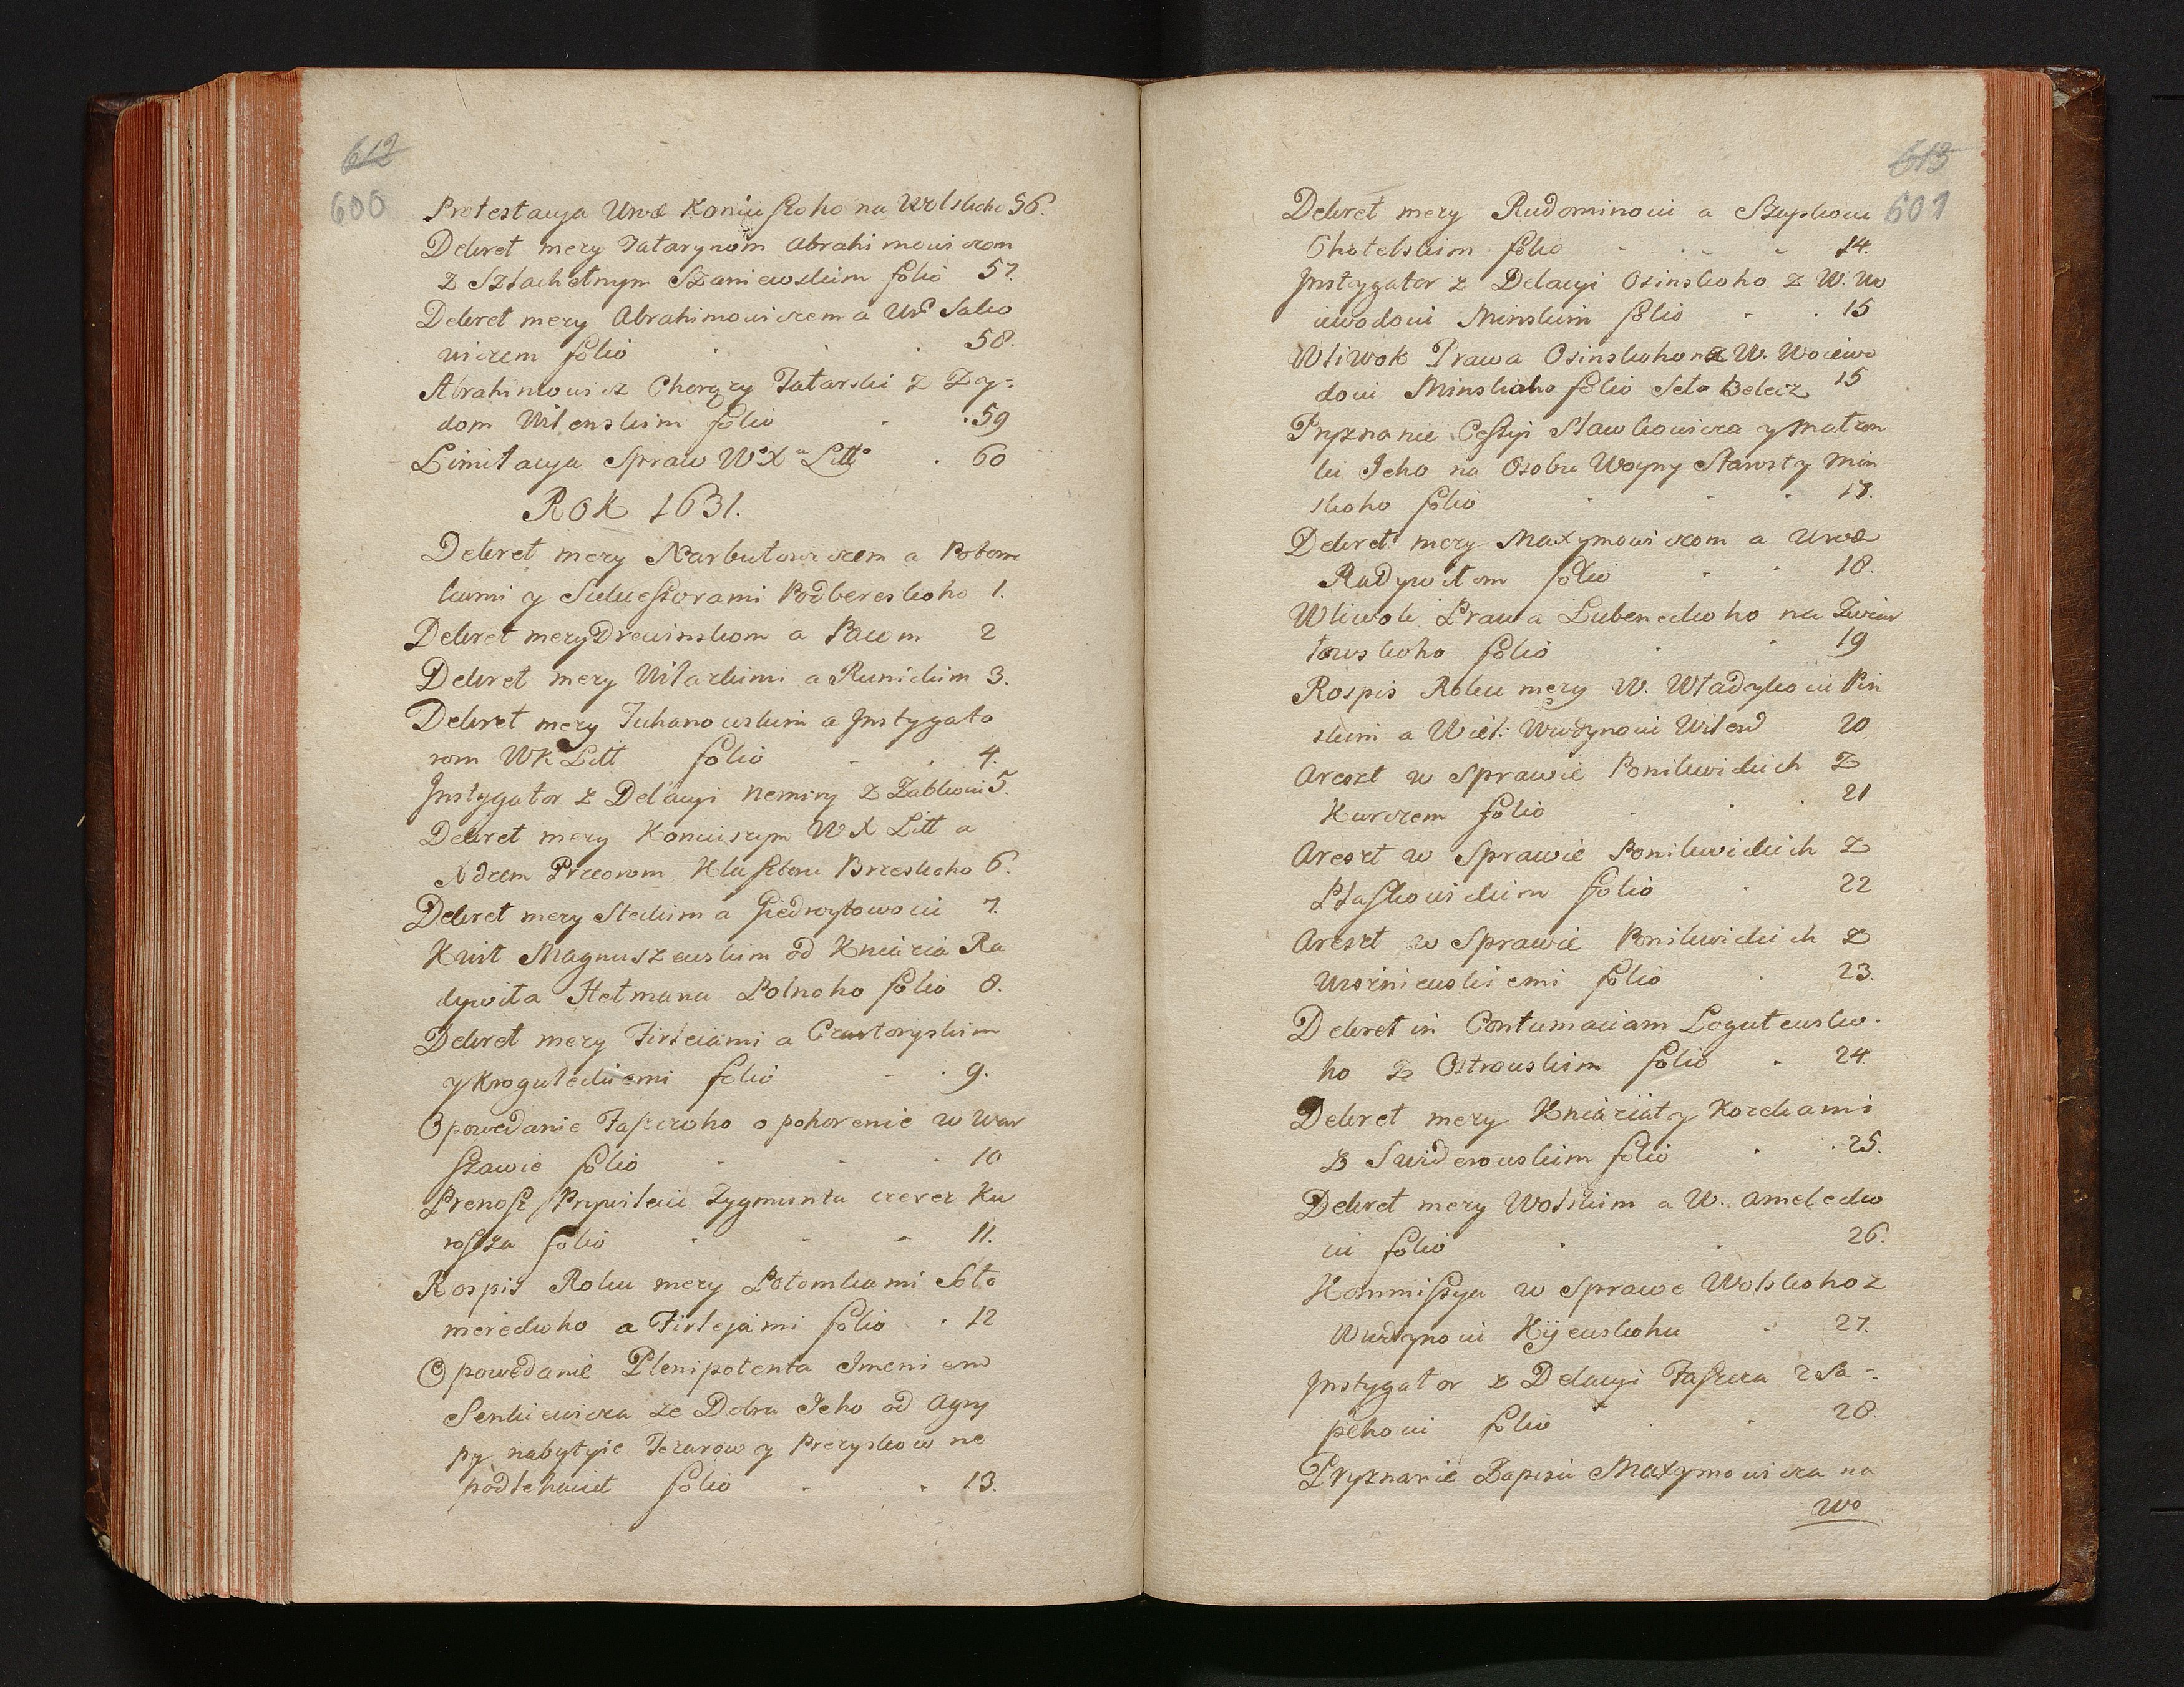 612
600
Protestacya Urod Koniuszoho na Wolskoho 56.
Dekret mezy Tatarynom Abrahimowiczom
z Szlachetnym Szaniewskim folio 57.
Dekret mezy Abrahimowiczem a Urd Salko
wiczem folio 58.
Abrahimowicz Chorązy Tatarski z Zy=
dom Wilenskim folio 59
Limitacya Spraw Wo Xa Litto 60
Rok 1631.
Dekret mezy Narbutowiczem a Potom
kami y Sukcessorami Podbereskoho 1.
Dekret mezy Drewinskom a Pacom 2
Dekret mezy Witazkimi a Runickim 3.
Dekret mezy Juhanowskim a Instygato
rom WX Litt folio 4.
Instygator z Delacyi Nemiry z Zabkowi 5.
Dekret mezy Koniuszym WX Litt a
Xdzem Przeorom Klasztoru Brzeskoho 6.
Dekret mezy Steckim a Giedroytowoiu 7.
Kwit Magnuszewskim od Kniazia Ra
dywiła Hetmana Polnoho folio 8.
Dekret mezy Firleiami a Czartoryskim
y Kroguleckiemi folio 9.
Opowedanie Faszczoho o pohorenie w War
szawie folio 10
Prenosz Prywileiu Zygmunta czerez Ku
rosza folio 11.
Rospis Roku mezy Potomkami Soło
mereckoho a Firlejami folio 12
Opowedanie Plenipotenta Imeniem
Senkiewicza ze Dobra Jeho od Agry
py nabytyie Tezarow y Prezyskow ne
podlehaiut folio 13.
613
601
Dekret mezy Rudominoiu a Szyszkoiu
Chotelskim folio 14.
Instygator z Delacyi Osinskoho z W. Wo
iewodoiu Minskim folio 15
Wliwok Prawa Osinskoho na W. Woiewo
doiu Minskoho folio Seto Belecz 15
Pryznanie Cessyi Stawkowicza y Małzon
ki Jeho na Osobu Woyny Starosty Min
skoho folio 17.
Dekret mezy Maxymowiczom a Urod
Radywiłom folio 18.
Wliwok Prawa Lubeneckoho na Zwiar
towskoho folio 19
Rospis Roku mezy W. Władykoiu Pin
skim a Wiel: Wwdynoiu Wilend 20
Areszt w Sprawie Ponikwickich z
Kurczem folio 21
Areszt w Sprawie Ponikwickich z
Ptaszkowickim folio 22
Areszt w Sprawie Ponikwickich z
Wiszniewskiemi folio 23.
Dekret in Contumaciam Łogutewsko.
ho z Ostrowskim folio 24
Dekret mezy Kniaziaty Koreckami
z Swiderowskim folio 25.
Dekret mezy Wolskim a W. Ameleckoiu
iu folio 26.
Kommissya w Sprawe Wolskoho z
Wwdynoiu Kijewskohu 27.
Instygator z Delacyi Faszcza z Sa=
pehoiu folio 28.
Pryznanie Zapisu Maxymowicza na
Wo